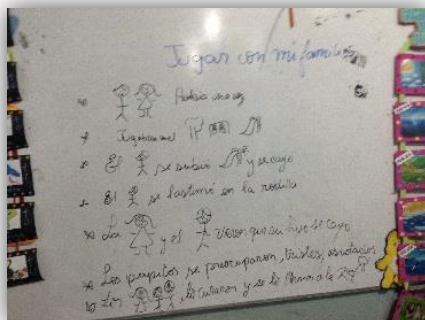 Jugar con mi familia
Había una vez
Jugaban en el
El se subió y se cayo
El se lastimó en la rodilla
La y el vieron que su hijo se cayo
Los papitos se preocuparon, tristes, asustados
Los le curaron y se le llevaron a la